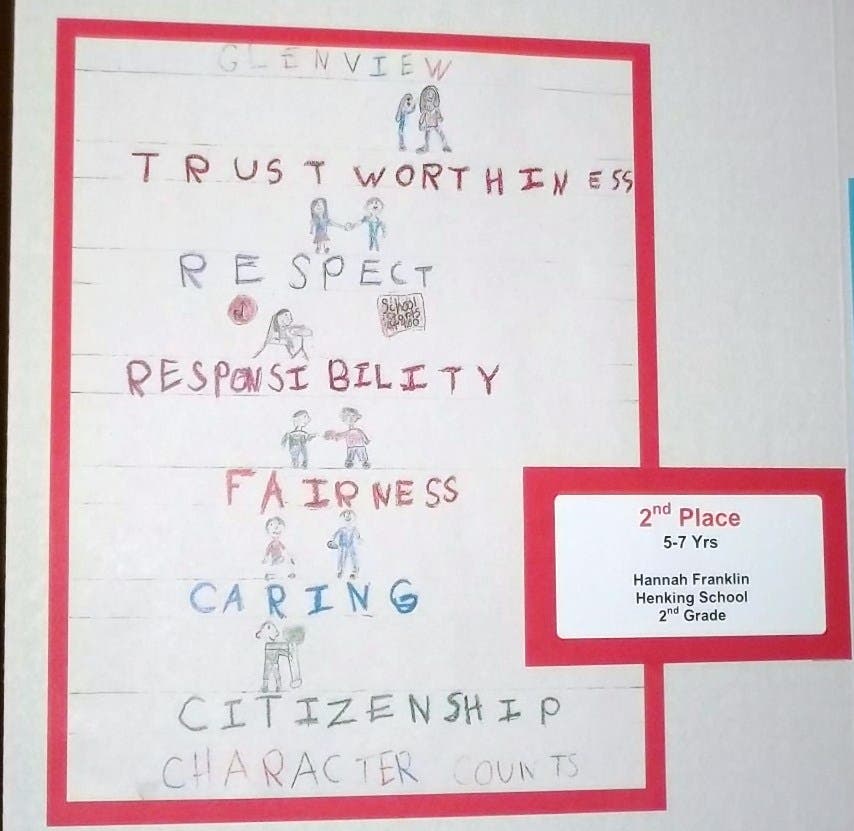 GLENVIEW
TRUSTWORTHINESS
RESPECT
School starts
RESPONSIBILITY
FAIRNESS
CARING
CITIZENSHIP
CHARACTER COUNTS
2nd Place
5-7 Yrs
Hannah Franklin
Henking School
2nd Grade